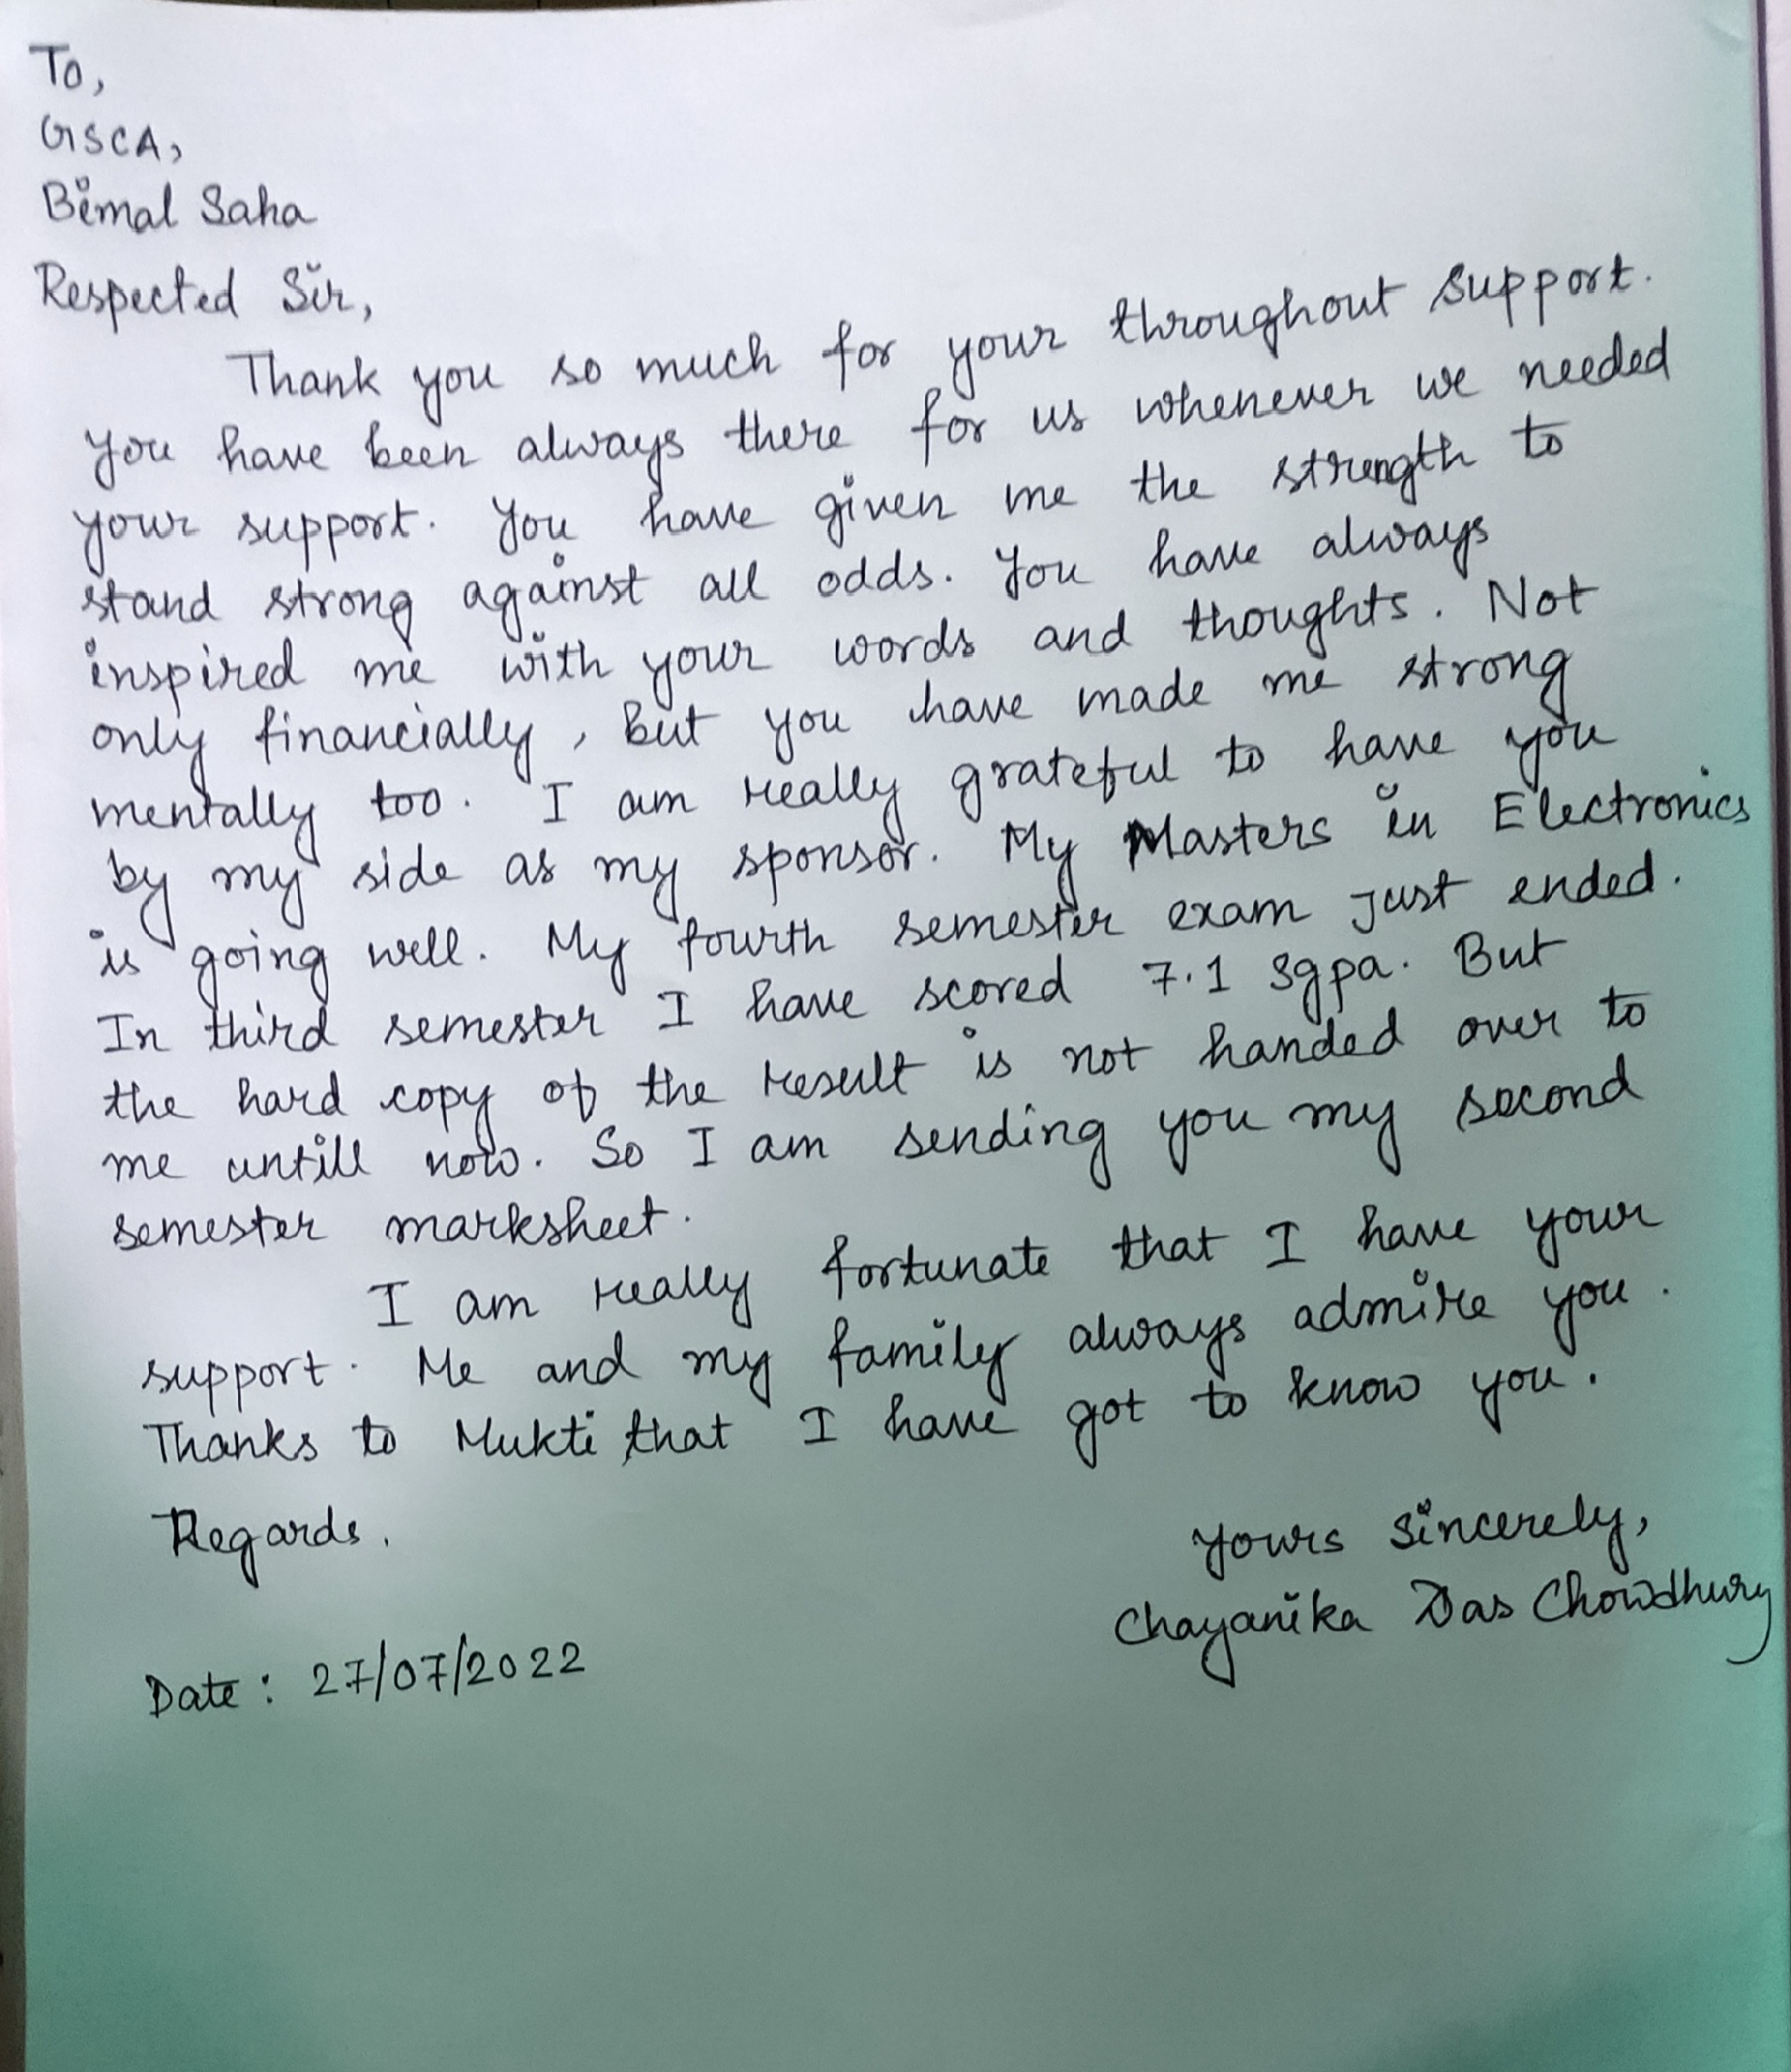 To,
GSCA,
Bimal Saha
Respected Sir,
Thank you so much for your throughout support.
You have been always there for us whenever we needed
your support. You have given me the strength to
stand strong against all odds. You have always
inspired me with your words and thoughts. Not
only financially, but you have made me strong
mentally too. I am really grateful to have you
by my side as my sponsor. My Masters in Electronics
is going well. My fourth semester exam just ended.
In third semester I have scored 7.1 sgpa. But
the hard copy of the result is not handed over to
me untill now. So I am sending you my second
semester marksheet.
I am really fortunate that I have your
support. Me and my family always admire you.
Thanks to Mukti that I have got to know you.
Regards.
Yours Sincerely,
Chayanika Das Chowdhury
Date: 27/07/2022